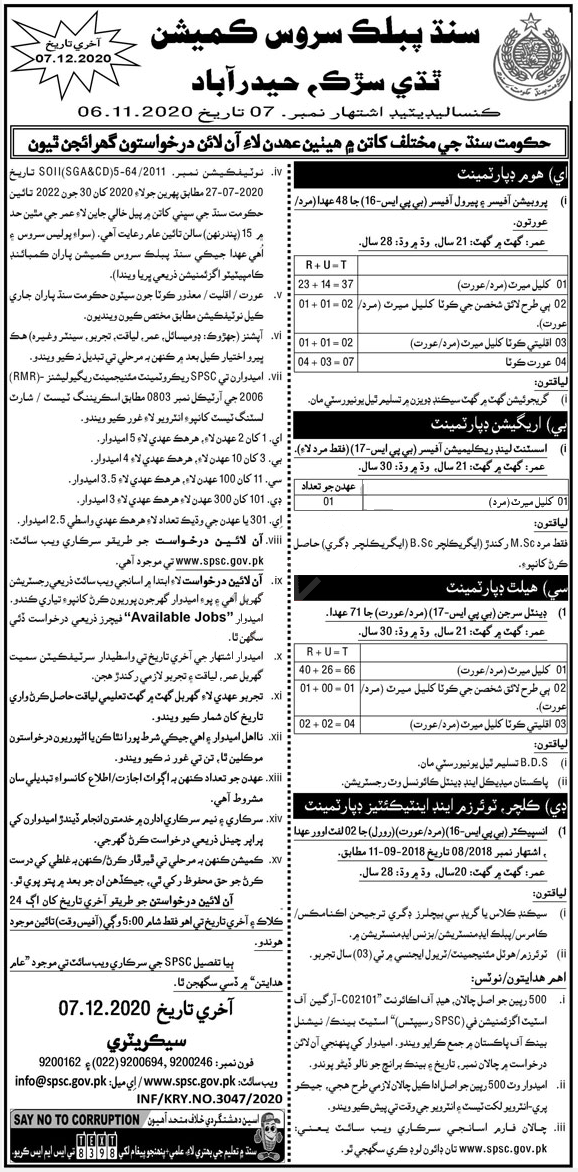 سنڌ پبلڪ سروس ڪميشن
ٿڌي سڙڪ، حيدرآباد
آخري تاريخ
07.12.2020
ڪنساليڊيٽيڊ اشتهار نمبر. 07 تاريخ 06.11.2020
حڪومت سنڌ جي مختلف کاتن ۾ هيٺين عهدن لاءِ آن لائن درخواستون گهرائجن ٿيون
اي) هوم ڊپارٽمينٽ
i) پروبيشن آفيسر ۽ پيرول آفيسر (بي پي ايس-16) جا 48 عهدا (مرد/
عورتون.
عمر: گهٽ ۾ گهٽ: 21 سال، وڌ ۾ وڌ: 28 سال.
R + U = T
01 کليل ميرٽ (مرد/عورت) 23 + 14 = 37
02 ٻي طرح لائق شخصن جي ڪوٽا کليل ميرٽ (مرد/
عورت). 01 + 01 = 02
03 اقليتي ڪوٽا کليل ميرٽ (مرد/عورت) 01 + 01 = 02
04 عورت ڪوٽا 04 + 03 = 07
لياقتون:
i) گريجوئيشن گهٽ ۾ گهٽ سيڪنڊ ڊويزن ۾ تسليم ٿيل يونيورسٽي مان.
بي) اريگيشن ڊپارٽمينٽ
i) اسسٽنٽ لينڊ ريڪليميشن آفيسر (بي پي ايس-17) (فقط مرد لاءِ).
عمر: گهٽ ۾ گهٽ: 21 سال، وڌ ۾ وڌ: 30 سال.
عهدن جو تعداد
01 کليل ميرٽ (مرد) 01
لياقتون:
فقط مرد M.Sc رکندڙ (ايگريڪلچر B.Sc (ايگريڪلچر ڊگري) حاصل
ڪري کانپوءِ.
سي) هيلٿ ڊپارٽمينٽ
1) ڊينٽل سرجن (بي پي ايس-17) (مرد/عورت) جا 71 عهدا.
عمر: گهٽ ۾ گهٽ: 21 سال، وڌ ۾ وڌ: 30 سال.
R + U = T
01 کليل ميرٽ (مرد/عورت) 40 + 26 = 66
02 ٻي طرح لائق شخصن جي ڪوٽا کليل ميرٽ (مرد/
عورت). 01 + 00 = 01
03 اقليتي ڪوٽا کليل ميرٽ (مرد/عورت) 02 + 02 = 04
لياقتون:
i) B.D.S تسليم ٿيل يونيورسٽي مان.
ii) پاڪستان ميڊيڪل اينڊ ڊينٽل ڪائونسل وٽ رجسٽريشن.
ڊي) ڪلچر، ٽوئرزم اينڊ اينٽيڪئٽيز ڊپارٽمينٽ
1) انسپيڪٽر (بي پي ايس-16) (مرد/عورت) (رورل) جا 02 لفٽ اوور عهدا
، اشتهار نمبر 08/2018 تاريخ 11-09-2018 مطابق.
عمر: گهٽ ۾ گهٽ: 20سال، وڌ ۾ وڌ: 28 سال.
لياقتون:
i) سيڪنڊ ڪلاس يا گريڊ سي بيچلرز ڊگري ترجيحن اڪنامڪس/
ڪامرس/پبلڪ ايڊمنسٽريشن/بزنس ايڊمنسٽريشن ۾.
ii) ٽوئرزم/هوٽل مئنيجمينٽ/ٽريول ايجنسي ۾ ٽي (03) سال تجربو.
اهم هدايتون/نوٽس:
i. 500 رپين جو اصل چالان، هيڊ آف اڪائونٽ "C02101-آرگين آف
اسٽيٽ اگزئمنيشن في (SPSC رسيپٽس)" اسٽيٽ بينڪ/نيشنل
بينڪ آف پاڪستان ۾ جمع ڪرايو ويندو. اميدوار کي پنهنجي آن لائن
درخواست ۾ چالان نمبر، تاريخ ۽ بينڪ برانچ جو نالو ڏيڻو پوندو.
ii. اميدوار وٽ 500 رپين جو اصل ادا ڪيل چالان لازمي طرح هجي، جيڪو
پري-انٽرويو لکت ٽيسٽ ۽ انٽرويو جي وقت تي پيش ڪيو ويندو.
iii. چالان فارم اسانجي سرڪاري ويب سائٽ يعني:
www.spsc.gov.pk تان ڊائون لوڊ ڪري سگهجي ٿو.
iv. نوٽيفڪيشن نمبر. SOII(SGA&CD)5-64/2011 تاريخ
27-07-2020 مطابق پهرين جولاءِ 2020 کان 30 جون 2022 تائين
حڪومت سنڌ جي سڀني کاتن ۾ پيل خالي جاين لاءِ عمر جي مٿين حد
۾ 15 (پندرنهن) سالن تائين عام رعايت آهي. (سواءِ پوليس سروس ۽
اُهي عهدا جيڪي سنڌ پبلڪ سروس ڪميشن پاران ڪمبائنڊ
ڪامپيٽيٽو اگزئمنيشن ذريعي ڀريا ويندا).
v. عورت / اقليت / معذور ڪوٽا جون سيٽون حڪومت سنڌ پاران جاري
ڪيل نوٽيفڪيشن مطابق مختص ڪيون وينديون.
vi. آپشنز (جهڙوڪ: ڊوميسائل، عمر، لياقت، تجربو، سينٽر وغيره) هڪ
ڀيرو اختيار ڪيل بعد ۾ ڪنهن به مرحلي تي تبديل نه ڪيو ويندو.
vii. اميدوارن تي SPSC ريڪروٽمينٽ مئنيجمينٽ ريگيوليشنز -(RMR)
2006 جي آرٽيڪل نمبر 0803 مطابق اسڪريننگ ٽيسٽ / شارٽ
لسٽنگ ٽيسٽ کانپوءِ انٽرويو لاءِ غور ڪيو ويندو.
اي. 1 کان 2 عهدن لاءِ، هر هڪ عهدي لاءِ 5 اميدوار.
بي. 3 کان 10 عهدن لاءِ، هر هڪ عهدي لاءِ 4 اميدوار.
سي. 11 کان 100 عهدن لاءِ، هر هڪ عهدي لاءِ 3.5 اميدوار.
ڊي. 101 کان 300 عهدن لاءِ هر هڪ عهدي لاءِ 3 اميدوار.
اي. 301 يا عهدن جي وڌيڪ تعداد لاءِ هر هڪ عهدي واسطي 2.5 اميدوار.
viii. آن لائين درخواست جو طريقو سرڪاري ويب سائٽ:
www.spsc.gov.pk تي موجود آهي.
ix. آن لائين درخواست لاءِ ابتدا ۾ اسانجي ويب سائٽ ذريعي رجسٽريشن
گهربل آهي ۽ پوءِ اميدوار گهرجون پوريون ڪرڻ کانپوءِ تياري ڪندو.
اميدوار "Available Jobs" فيچرز ذريعي درخواست ڏئي
سگهن ٿا.
x. اميدوار اشتهار جي آخري تاريخ تي واسطيدار سرٽيفڪيٽن سميت
گهربل عمر، لياقت ۽ تجربو لازمي رکندڙ هجن.
xi. تجربو عهدي لاءِ گهربل گهٽ ۾ گهٽ تعليمي لياقت حاصل ڪرڻ واري
تاريخ کان شمار ڪيو ويندو.
xii. نااهل اميدوار ۽ اهي جيڪي شرط پورا نٿا ڪن يا اڻپوريون درخواستون
موڪلين ٿا، تن تي غور نه ڪيو ويندو.
xiii. عهدن جو تعداد ڪنهن به اڳواٽ اجازت/اطلاع کانسواءِ تبديلي سان
مشروط آهي.
xiv. سرڪاري ۽ نيم سرڪاري ادارن ۾ خدمتون انجام ڏيندڙ اميدوارن کي
پراپر چينل ذريعي درخواست ڪرڻ گهرجي.
xv. ڪميشن ڪنهن به مرحلي تي ڦيرڦار ڪرڻ/ڪنهن به غلطي کي درست
ڪرڻ جو حق محفوظ رکي ٿي، جيڪڏهن ان جو بعد ۾ پتو پوي ٿو.
آن لائين درخواستن جو طريقو آخري تاريخ کان اڳ 24
ڪلاڪ ۽ آخري تاريخ تي اهو فقط شام 5:00 وڳي (آفيس وقت) تائين موجود
هوندو.
ٻيا تفصيل SPSC جي سرڪاري ويب سائٽ تي موجود "عام
هدايتن" ۾ ڏسي سگهجن ٿا.
آخري تاريخ 07.12.2020
سيڪريٽري
فون نمبر: 9200246 ,9200694 (022) ۽ 9200162
ويب سائيٽ: www.spsc.gov.pk/ اِي ميل: info@spsc.gov.pk
INF/KRY.NO.3047/2020
SAY NO TO CORRUPTION
اسين دهشتگردي خلاف متحد آهيون
TEXT
8398
سنڌ ۾ تعليم جي بهتري لاءِ، علمي، پنهنجو پيغام لکي
تي ايس ايم ايس ڪريو.